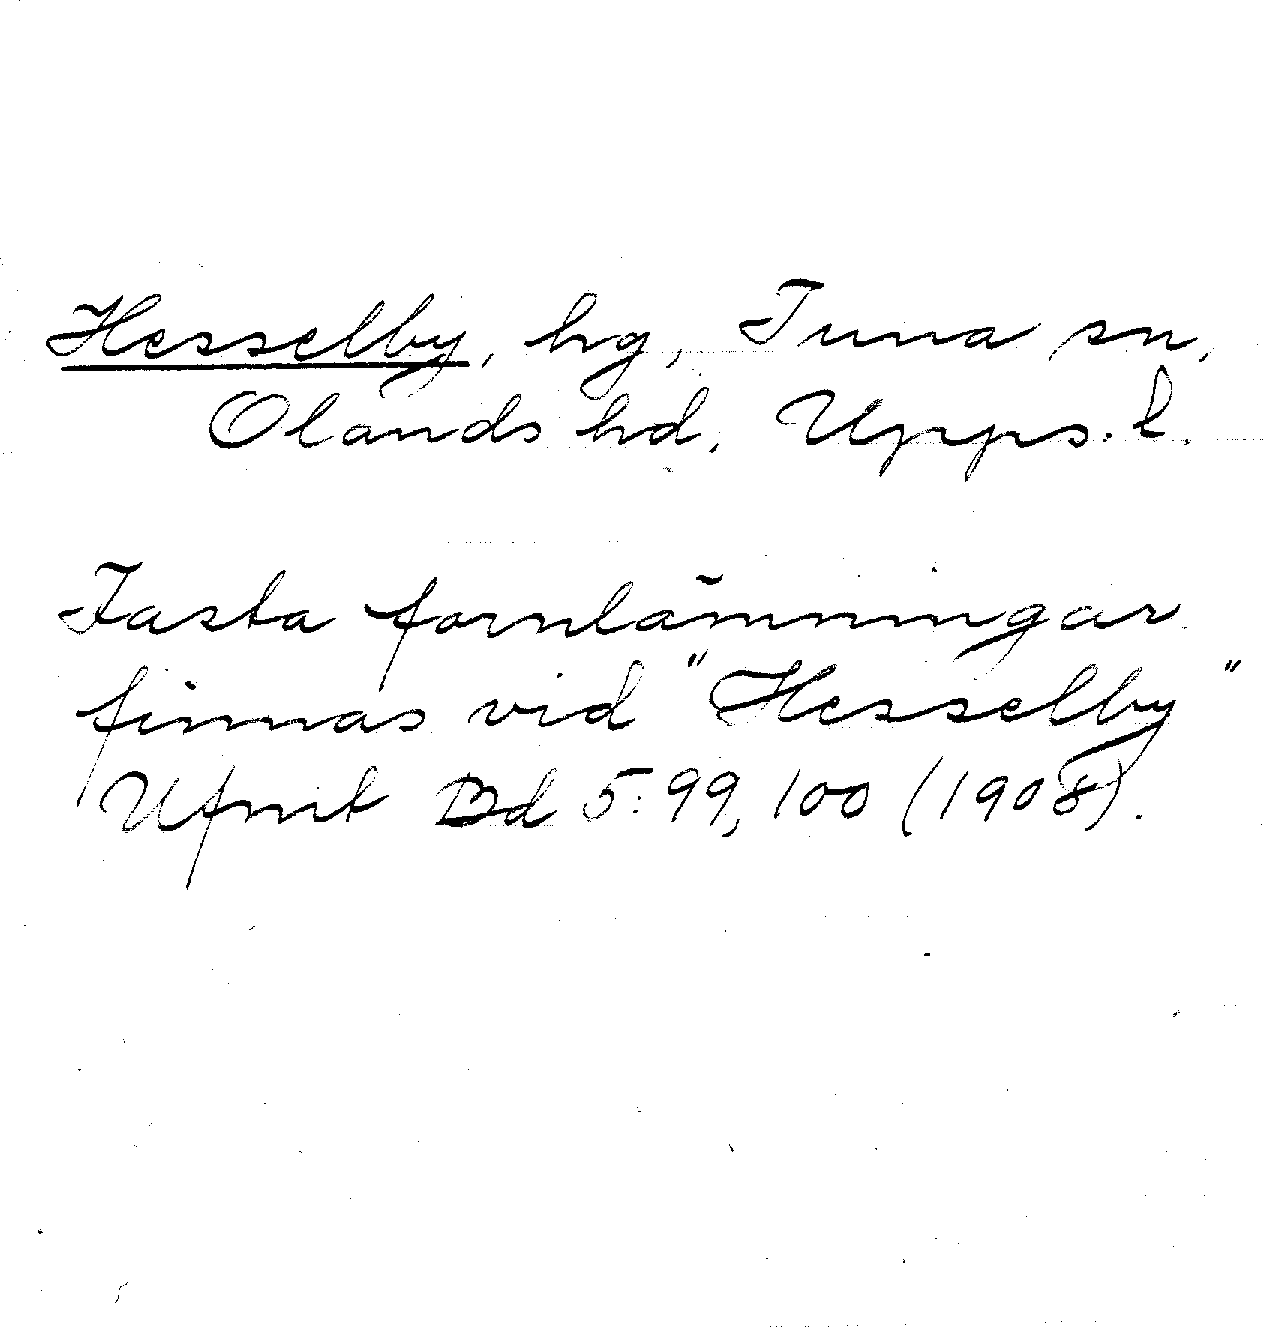 Hesselby, hg, Tuna sn,
Olands hd, Upps. l.
Fasta fornlämningar
finnas vid "Hesselby"
Ufmt Bd 5: 99, 100 (1908).